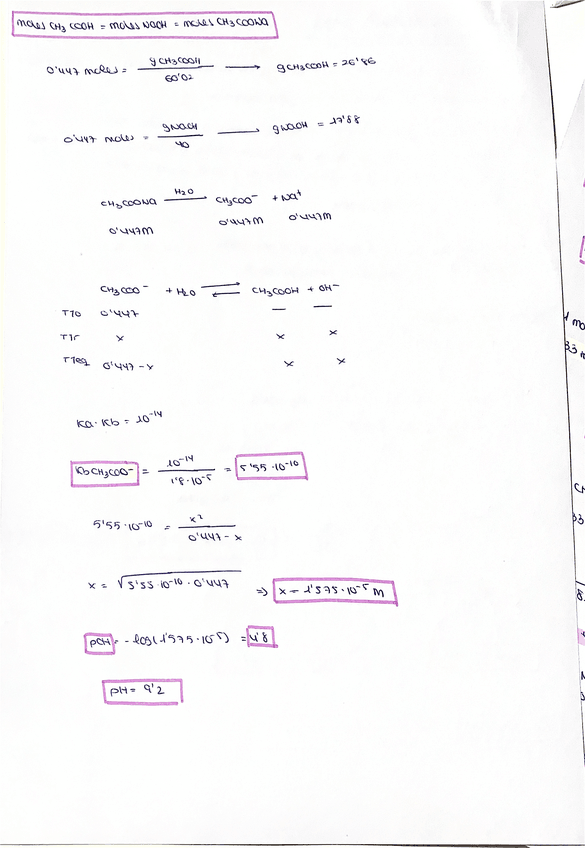 moles CH3COOH = moles NaOH = moles CH3COONa
0'447 moles = gCH3COOH / 60'02 → gCH3COOH = 26'86
0'447 moles = gNaOH / 40 → gNaOH = 17'88
CH3COONa H2O → CH3COO- + Na+
0'447M 0'447M 0'447M
CH3COO- + H2O ⇌ CH3COOH + OH-
T/o 0'447 — —
T/r x x x
T/eq 0'447 - x x x
Ka · Kb = 10^-14
Kb CH3COO- = 10^-14 / 1'8·10^-5 = 5'55·10^-10
5'55·10^-10 = x² / 0'447 - x
x = √5'55·10^-10 · 0'447 ⇒ x = 1'575·10^-5 M
pOH = -log(1'575·10^-5) = 4'8
pH = 9'2